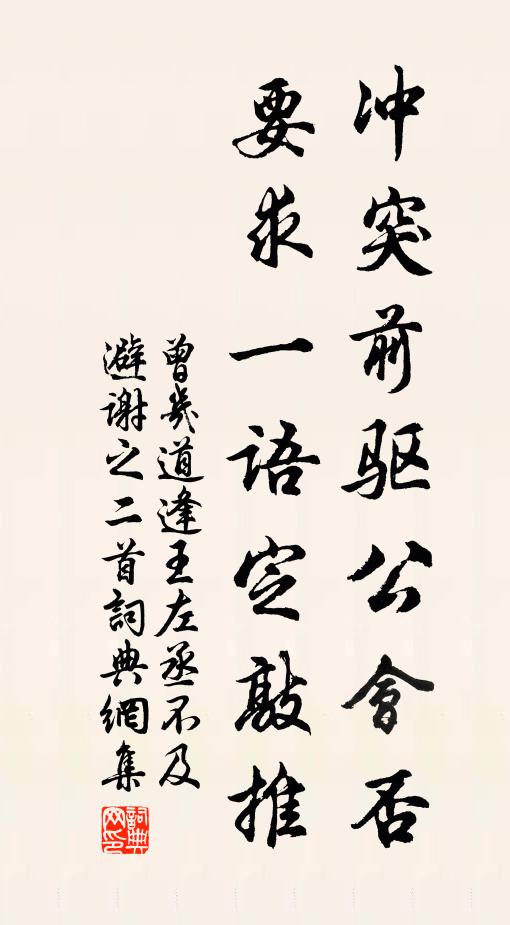 冲突前驱公會否
要求一语定敲推
曾幾道逢王左丞不及
避谢之二首詞典網集
詞典网印